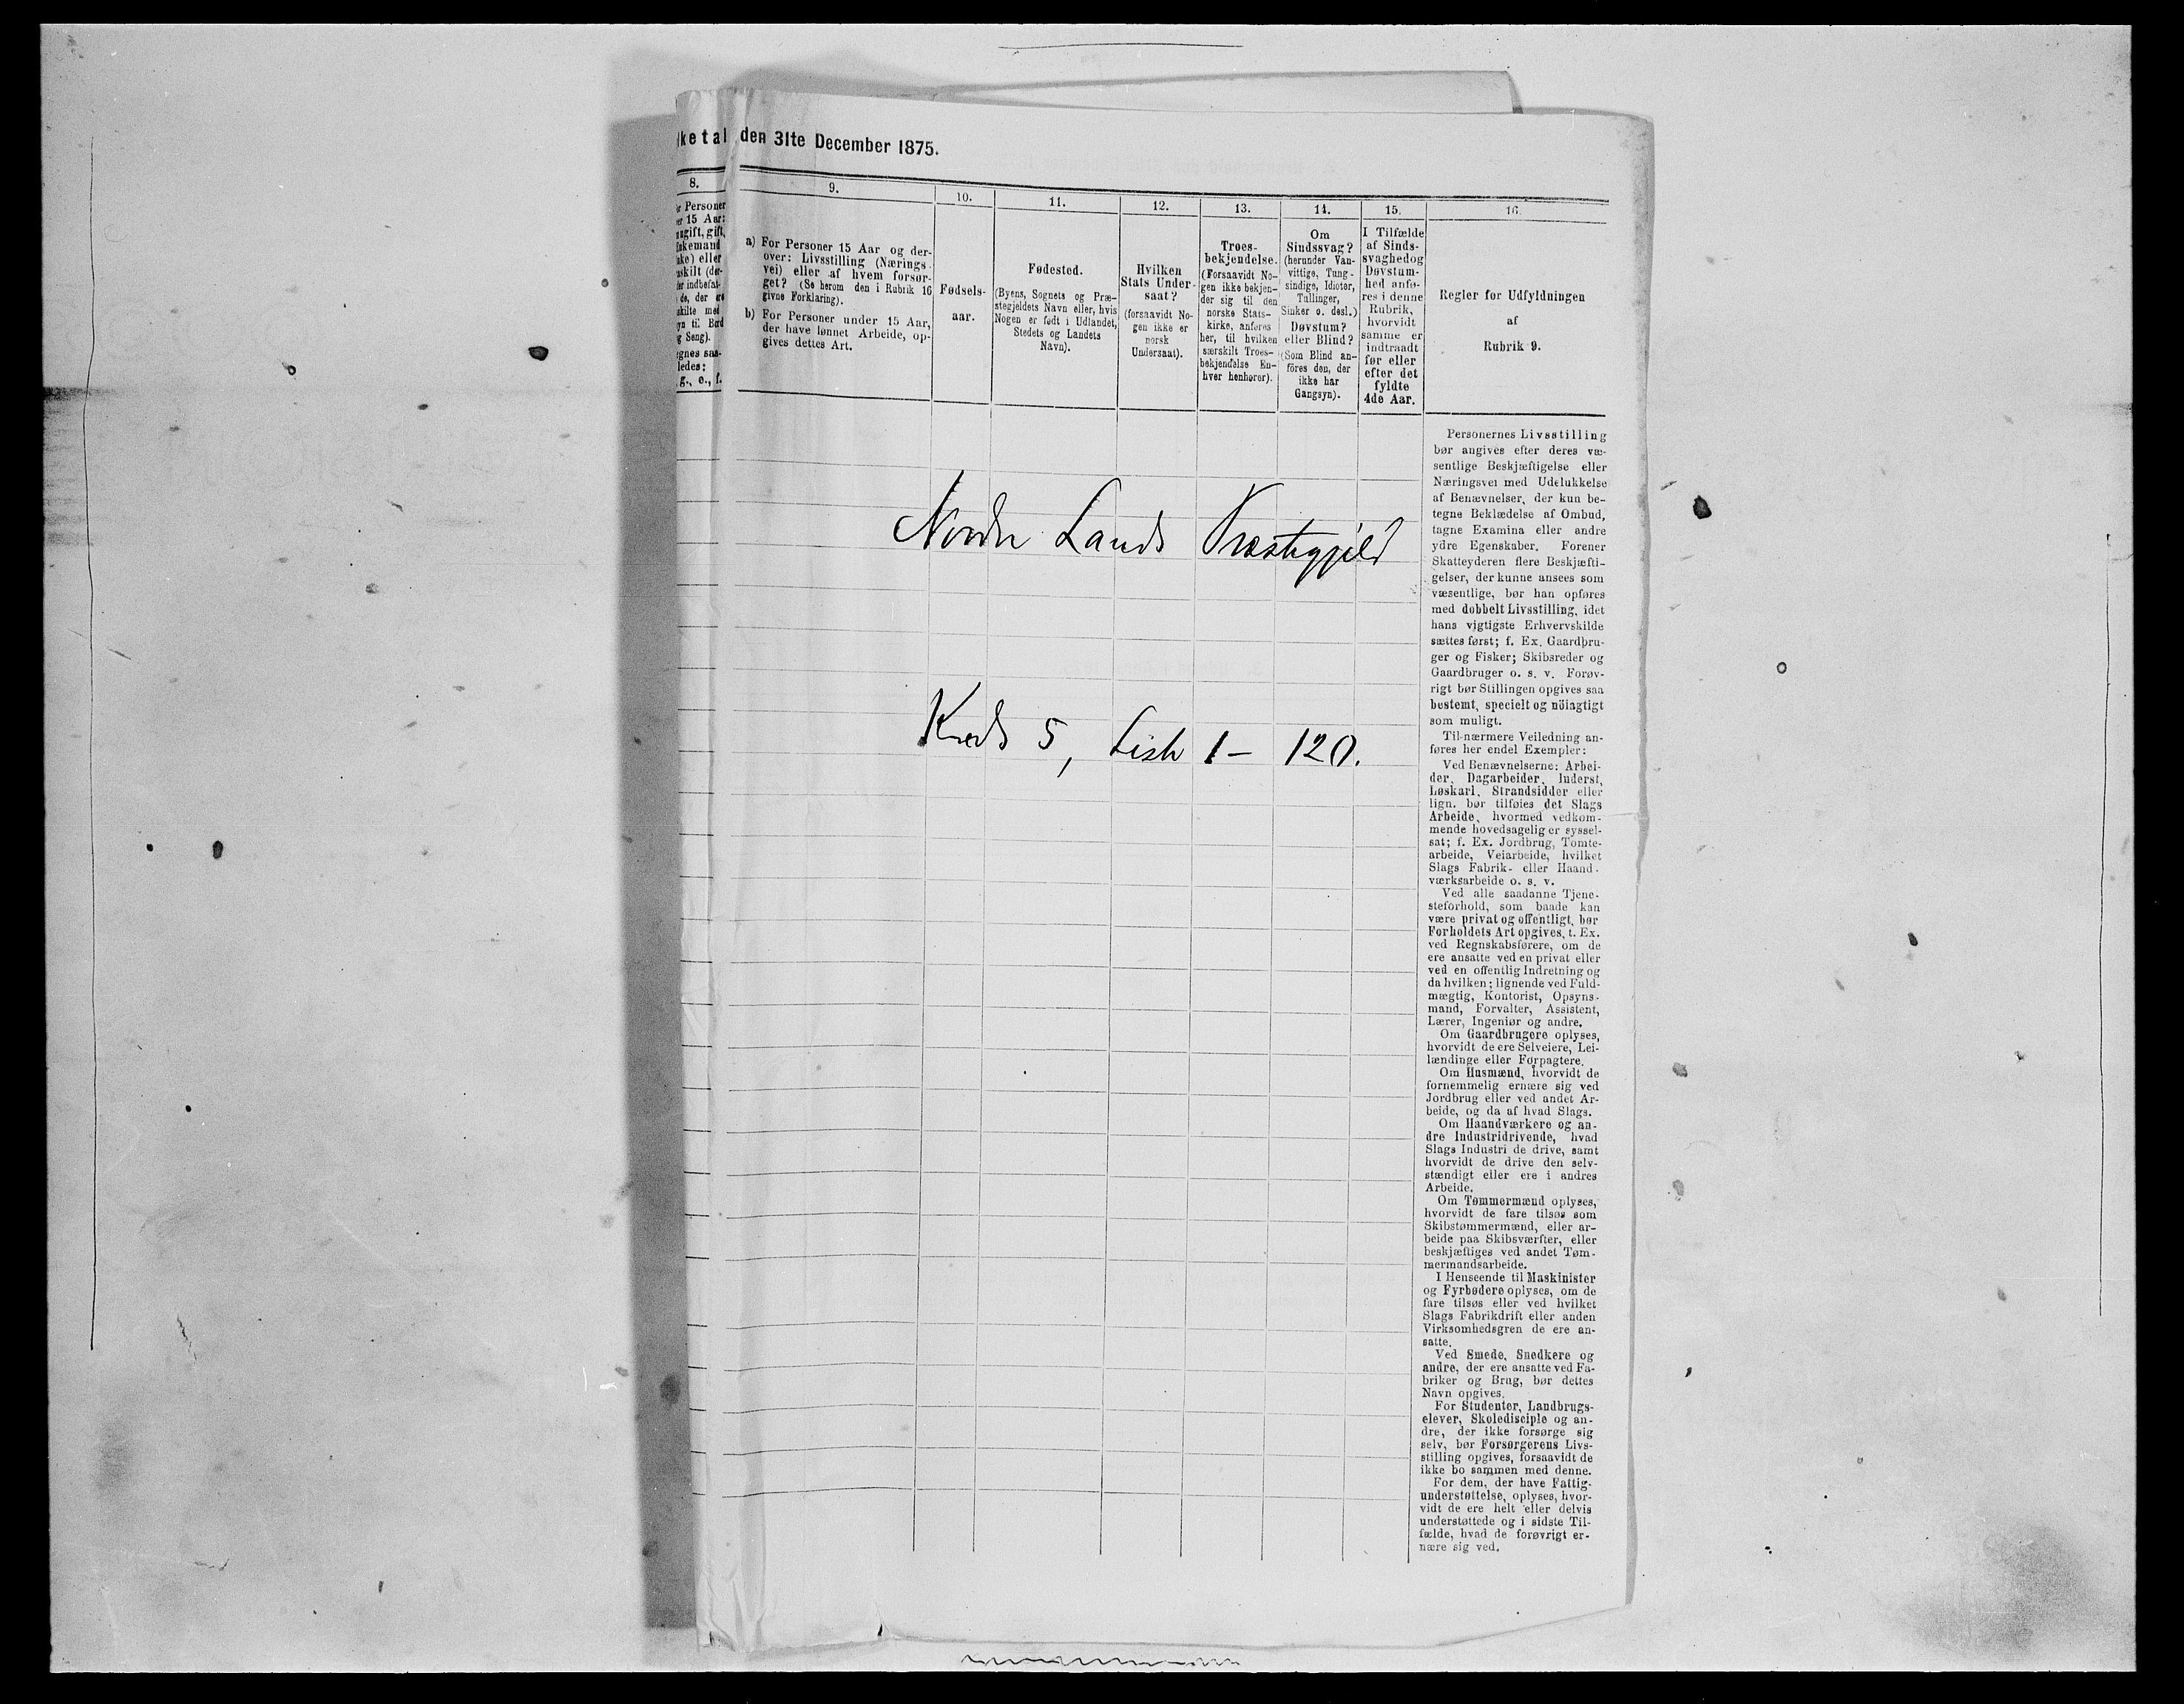 ketal den 31te December 1875.
8.
Personer
15 Aar:
ugift, gift,
Enkemand
eller
indbefat-
de, der ere
skilte med
til Bord
Seng).
saa-
ledes:
g., e., f.
9.
a) For Personer 15 Aar og der-
over: Livsstilling (Nærings-
vei) eller af hvem forsør-
get? (Se herom den i Rubrik 16
givne Forklaring).
b) For Personer under 15 Aar,
der have lønnet Arbeide, op-
gives dettes Art.
10.
Fødsels-
aar.
11.
Fødested.
(Byens, Sognets og Præ-
stegjeldets Navn eller, hvis
Nogen er født i Udlandet,
Stedets og Landets
Navn).
12.
Hvilken
Stats Under-
saat?
(forsaavidt No-
gen ikke er
norsk
Undersaat).
13.
Troes-
bekjendelse.
(Forsaavidt No-
gen ikke bekjen-
der sig til den
norske Stats-
kirke, anføres
her, til hvilken
særskilt Troes-
bekjendelse En-
hver henhører).
14.
Om
Sindssvag?
(herunder Van-
vittige, Tung-
sindige, Idioter,
Tullinger,
Sinker o. desl.)
Døvstum?
eller Blind?
(Som Blind an-
föres den, der
ikke har
Gangsyn).
15.
I Tilfælde
af Sinds-
svaghedog
Døvstum-
hed anfø-
res i denne
Rubrik,
hvorvidt
samme er
indtraadt
før eller
efter det
fyldte
4de Aar.
16.
Regler for Udfyldningen
af
Rubrik 9.
Personernes Livsstilling
bør angives efter deres væ-
sentlige Beskjæftigelse eller
Næringsvei med Udelukkelse
af Benævnelser, der kun be-
tegne Beklædelse af Ombud,
tagne Examina eller andre
ydre Egenskaber. Forener
Skatteyderen flere Beskjæfti-
gelser, der kunne ansees som
væsentlige, bør han opføres
med dobbelt Livsstilling, idet
hans vigtigste Erhvervskilde
sættes først; f. Ex. Gaardbru-
ger og Fisker; Skibsreder og
Gaardbruger o. s. v. Forøv-
rigt bør Stillingen opgives saa
bestemt, specielt og nöiagtigt
som muligt.
Til nærmere Veiledning an-
føres her endel Exempler:
Ved Benævnelserne: Arbei-
der, Dagarbeider, Inderst,
Løskarl, Strandsidder eller
lign. bør tilføies det Slags
Arbeide, hvormed vedkom-
mende hovedsagelig er syssel-
sat; f. Ex. Jordbrug, Tomte-
arbeide, Veiarbeide, hvilket
Slags Fabrik- eller Haand-
værksarbeide o. s. v.
Ved alle saadanne Tjene-
steforhold, som baade kan
være privat og offentligt, bør
Forholdets Art opgives, t. Ex.
ved Regnskabsførere, om de
ere ansatte ved en privat eller
ved en offentlig Indretning og
da hvilken; lignende ved Fuld-
mægtig, Kontorist, Opsyns-
mand, Forvalter, Assistent,
Lærer, Ingeniør og andre.
Om Gaardbrugere oplyses,
hvorvidt de ere Selveiere, Lei-
lændinge eller Forpagtere.
Om Husmænd, hvorvidt de
fornemmelig ernære sig ved
Jordbrug eller ved andet Ar-
beide, og da af hvad Slags.
Om Haandværkere og an-
dre Industridrivende, hvad
Slags Industri de drive, samt
hvorvidt de drive den selv-
stændigt eller ere i andres
Arbeide.
Om Tømmermænd oplyses,
hvorvidt de fare tilsøs som
Skibstømmermænd, eller ar-
beide paa Skibsværfter, eller
beskjæftiges ved andet Tøm-
mermandsarbeide.
I Henseende til Maskinister
og Fyrbødere oplyses, om de
fare tilsøs eller ved hvilket
Slags Fabrikdrift eller anden
Virksomhedsgren de ere an-
satte.
Ved Smede, Snedkere og
andre, der ere ansatte ved Fa-
briker og Brug, bør dettes
Navn opgives.
For Studenter, Landbrugs-
elever, Skoledisciple og an-
dre, der ikke forsørge sig
selv, bør Forsørgerens Livs-
stilling opgives, forsaavidt de
ikke bo sammen med denne.
For dem, der have Fattig-
understøttelse, oplyses, hvor-
vidt de ere helt eller delvis
understøttede og i sidste Til-
fælde, hvad de forøvrigt er-
nære sig ved.
Nordre Lands Præstegjeld
Kreds 5, Liste 1 - 120.